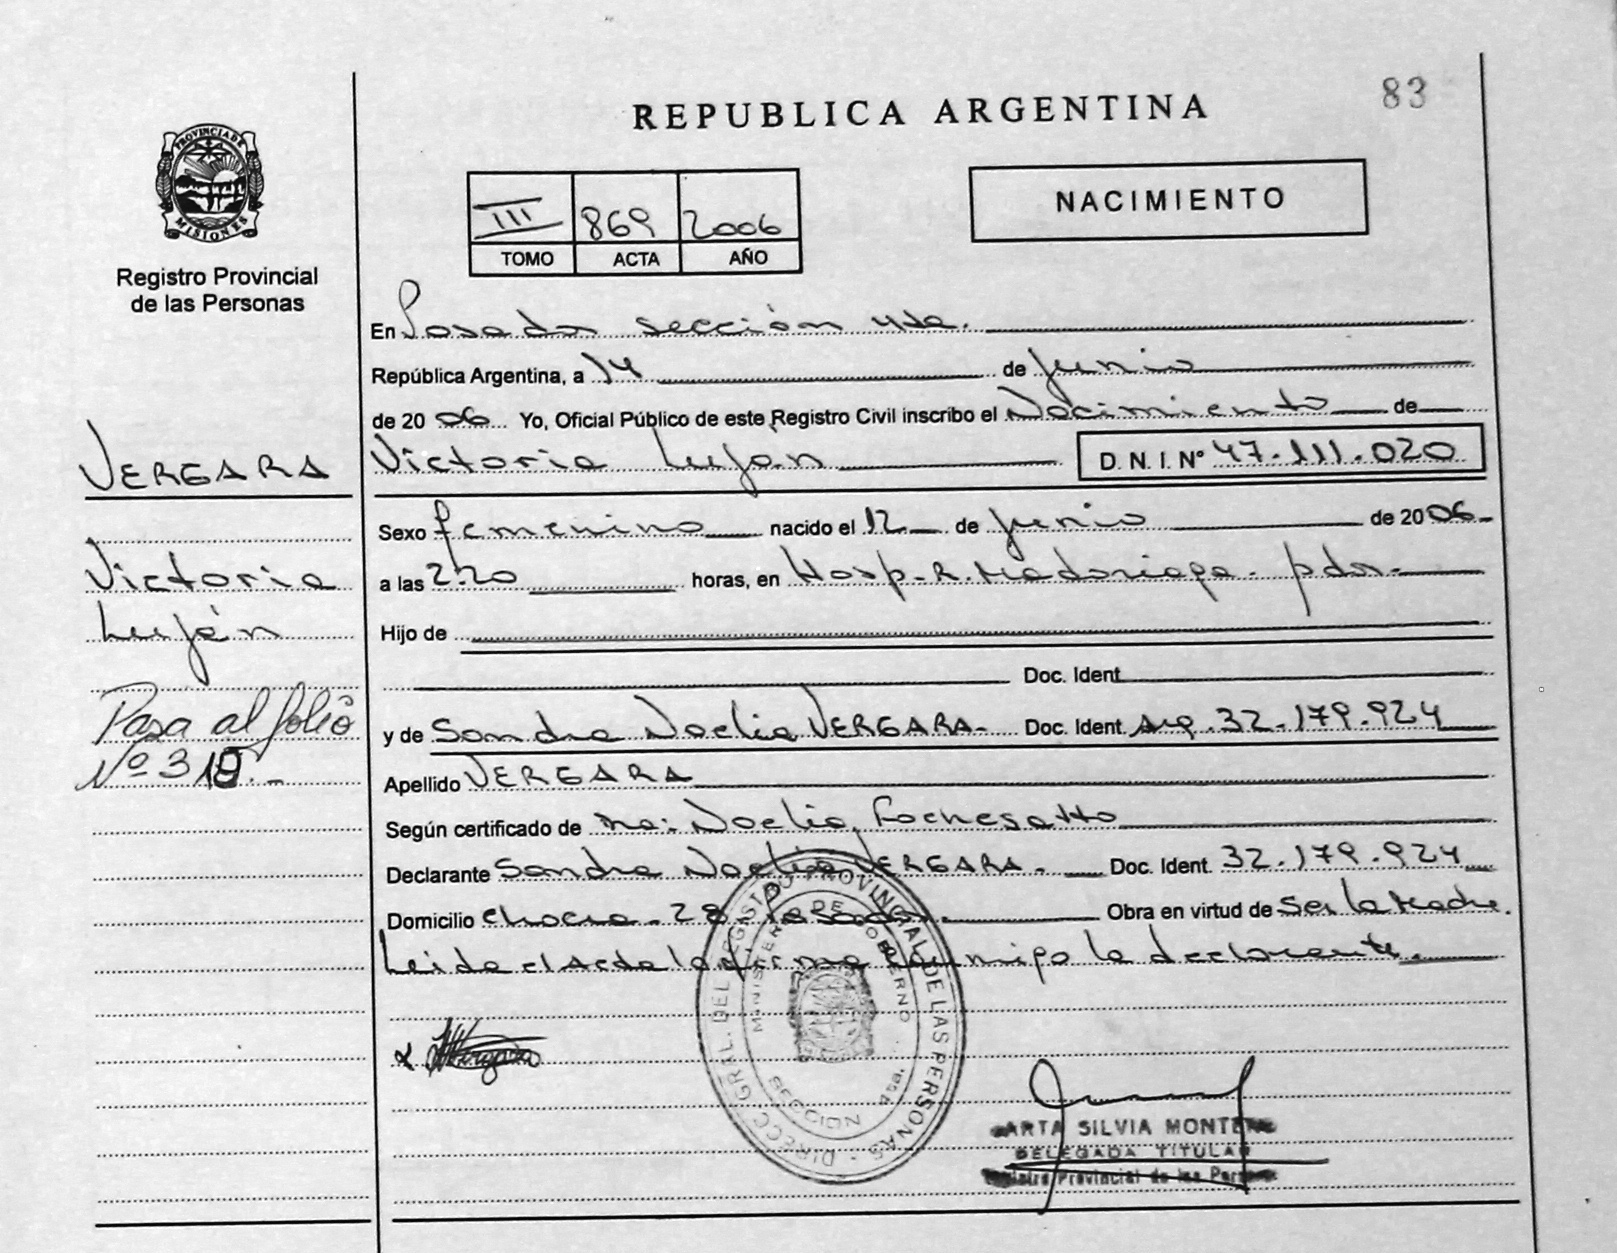 83
REPUBLICA ARGENTINA
PROVINCIA DE
MISIONES
Registro Provincial
de las Personas
III 869 2006
TOMO ACTA AÑO
NACIMIENTO
En Posadas sección 4ta.
República Argentina, a 14 de Junio
de 2006 Yo, Oficial Público de este Registro Civil inscribo el Nacimiento de
Victoria Luján D.N.I. Nº 47.111.020
VERGARA
Victoria
Luján
Pasa al folio
Nº 319.-
Sexo femenino nacido el 12 de Junio de 2006.
a las 2:20 horas, en Hosp. R. Madariaga. pdas.
Hijo de
Doc. Ident.
y de Sandra Noelia VERGARA. Doc. Ident. Arg. 32.179.924
Apellido VERGARA
Según certificado de Noelia Fochesatto
Declarante Sandra Noelia VERGARA. Doc. Ident. 32.179.924
Domicilio chacra. 28. Posadas. Obra en virtud de Ser la Madre.
Leida el Acta la firma conmigo la declarante.
DIRECC. GRAL. DEL REGISTRO PROVINCIAL DE LAS PERSONAS
MINISTERIO DE GOBIERNO
SECCION 4ta.
SILVIA
DELEGADA TITULAR
Provincial de las